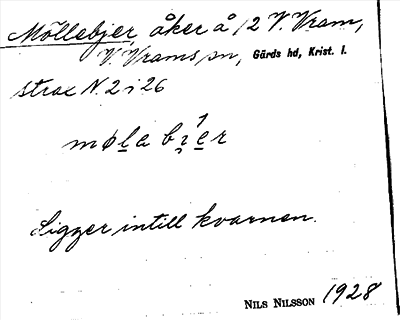 Möllebjer, åker å 12 V. Vram,
V. Vrams sn, Gärds hd, Krist. l.
strax N. 2 i 26
møla bier
Ligger intill kvarnen.
NILS NILSSON 1928